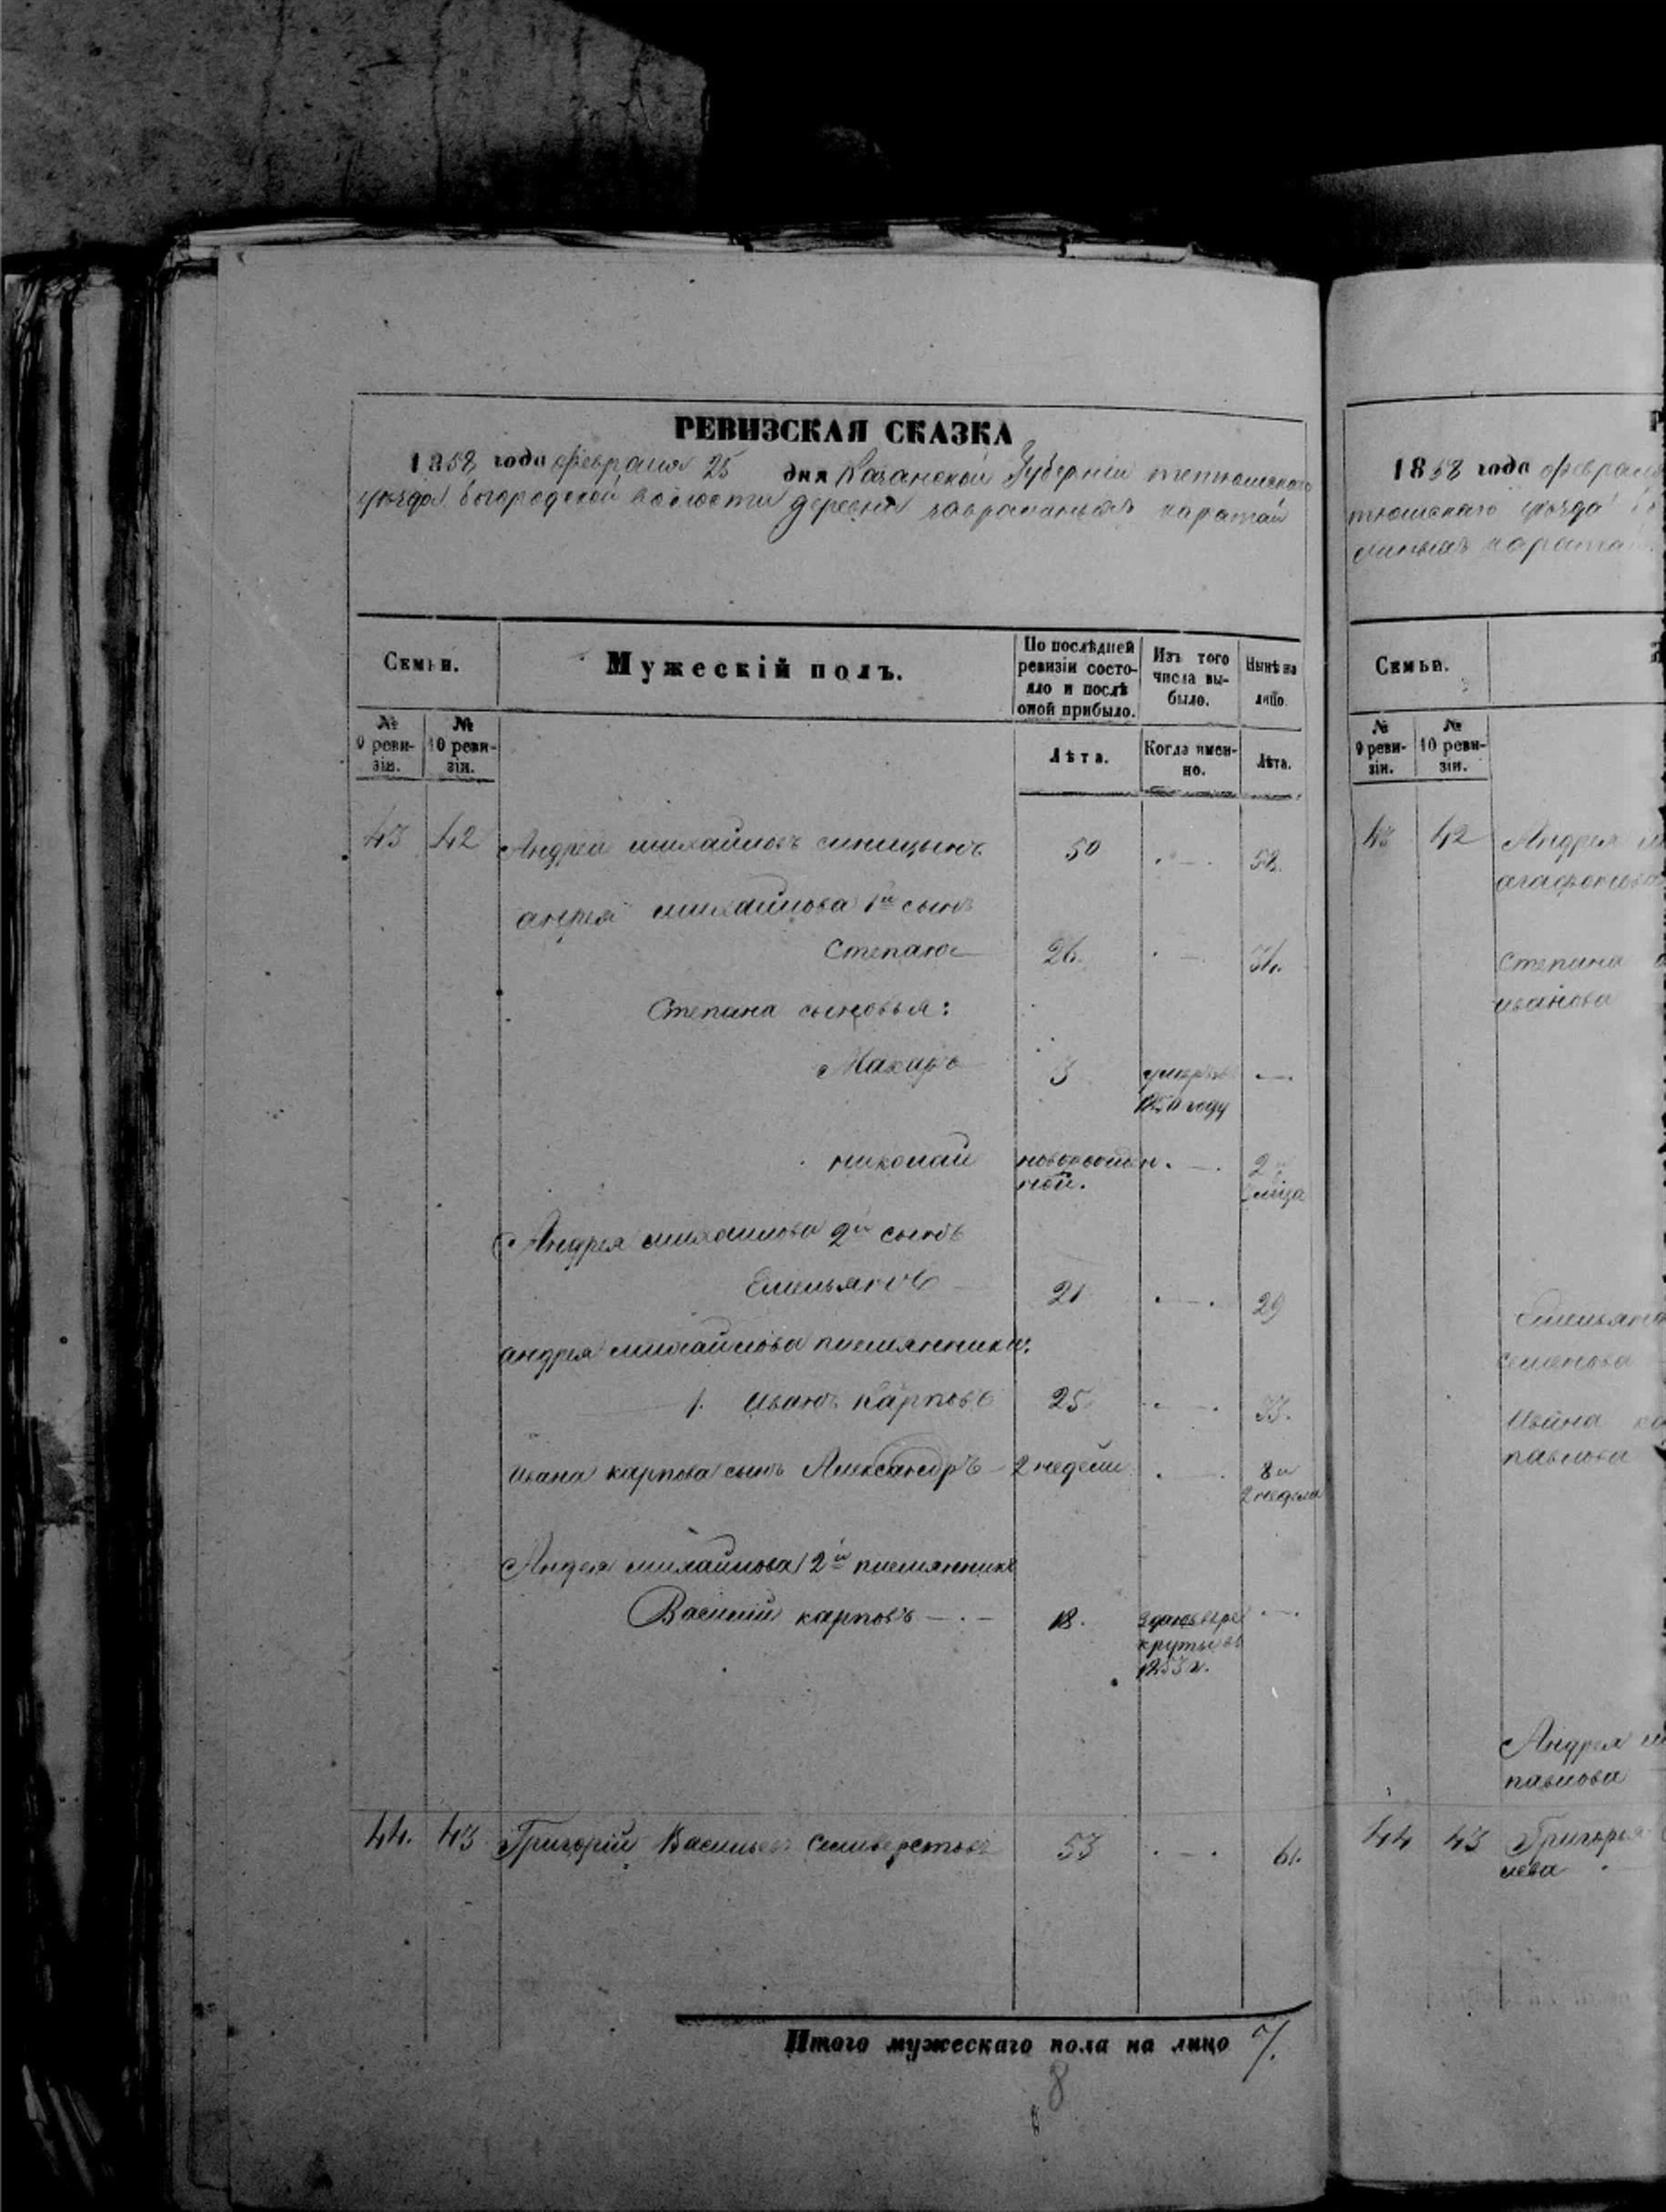 РЕВИЗСКАЯ СКАЗКА
1858 года февраля 25 дня Казанской Губерніи тетюшскаго
уѣзда богородской волости деревни заврашныхъ каратай
Семьи.
Мужескій полъ.
По послѣдней ревизіи состояло и послѣ оной прибыло.
Изъ того числа выбыло.
Нынѣ на лицо.
№ 9 ревизіи.
№ 10 ревизіи.
Лѣта.
Когда именно.
Лѣта.
43 42 Андрей михайловъ синицынъ 50 58.
андрея михайлова 1й сынъ
Степанъ 26. 34.
Степана сыновья:
Макаръ 3 умеръ
1850 году
николай новорожден. 2
ной. мѣсяца
Андрея михайлова 2й сынъ
Емельянъ 21 29
андрея михайлова племянники:
1. Иванъ Карповъ 25 33.
Ивана карпова сынъ Александръ 2 недели 8 и
2 недели
Андрея михайлова 2й племянникъ
Василий карповъ 18. зданъ въ ре
круты въ
1853 г.
44. 43 Григорій Васильевъ Селиверстовъ 53 61.
Итого мужескаго пола на лицо 7.
8
1858 года февраля
тюшскаго уѣзда
карата
Семьи.
№ 9 ревизіи.
№ 10 ревизіи.
43 42 Андрея
агафонова
Степана
иванова
Емельяна
семенова
Ивана
павлова
Андрея
павлова
44 43 Григорья
лева